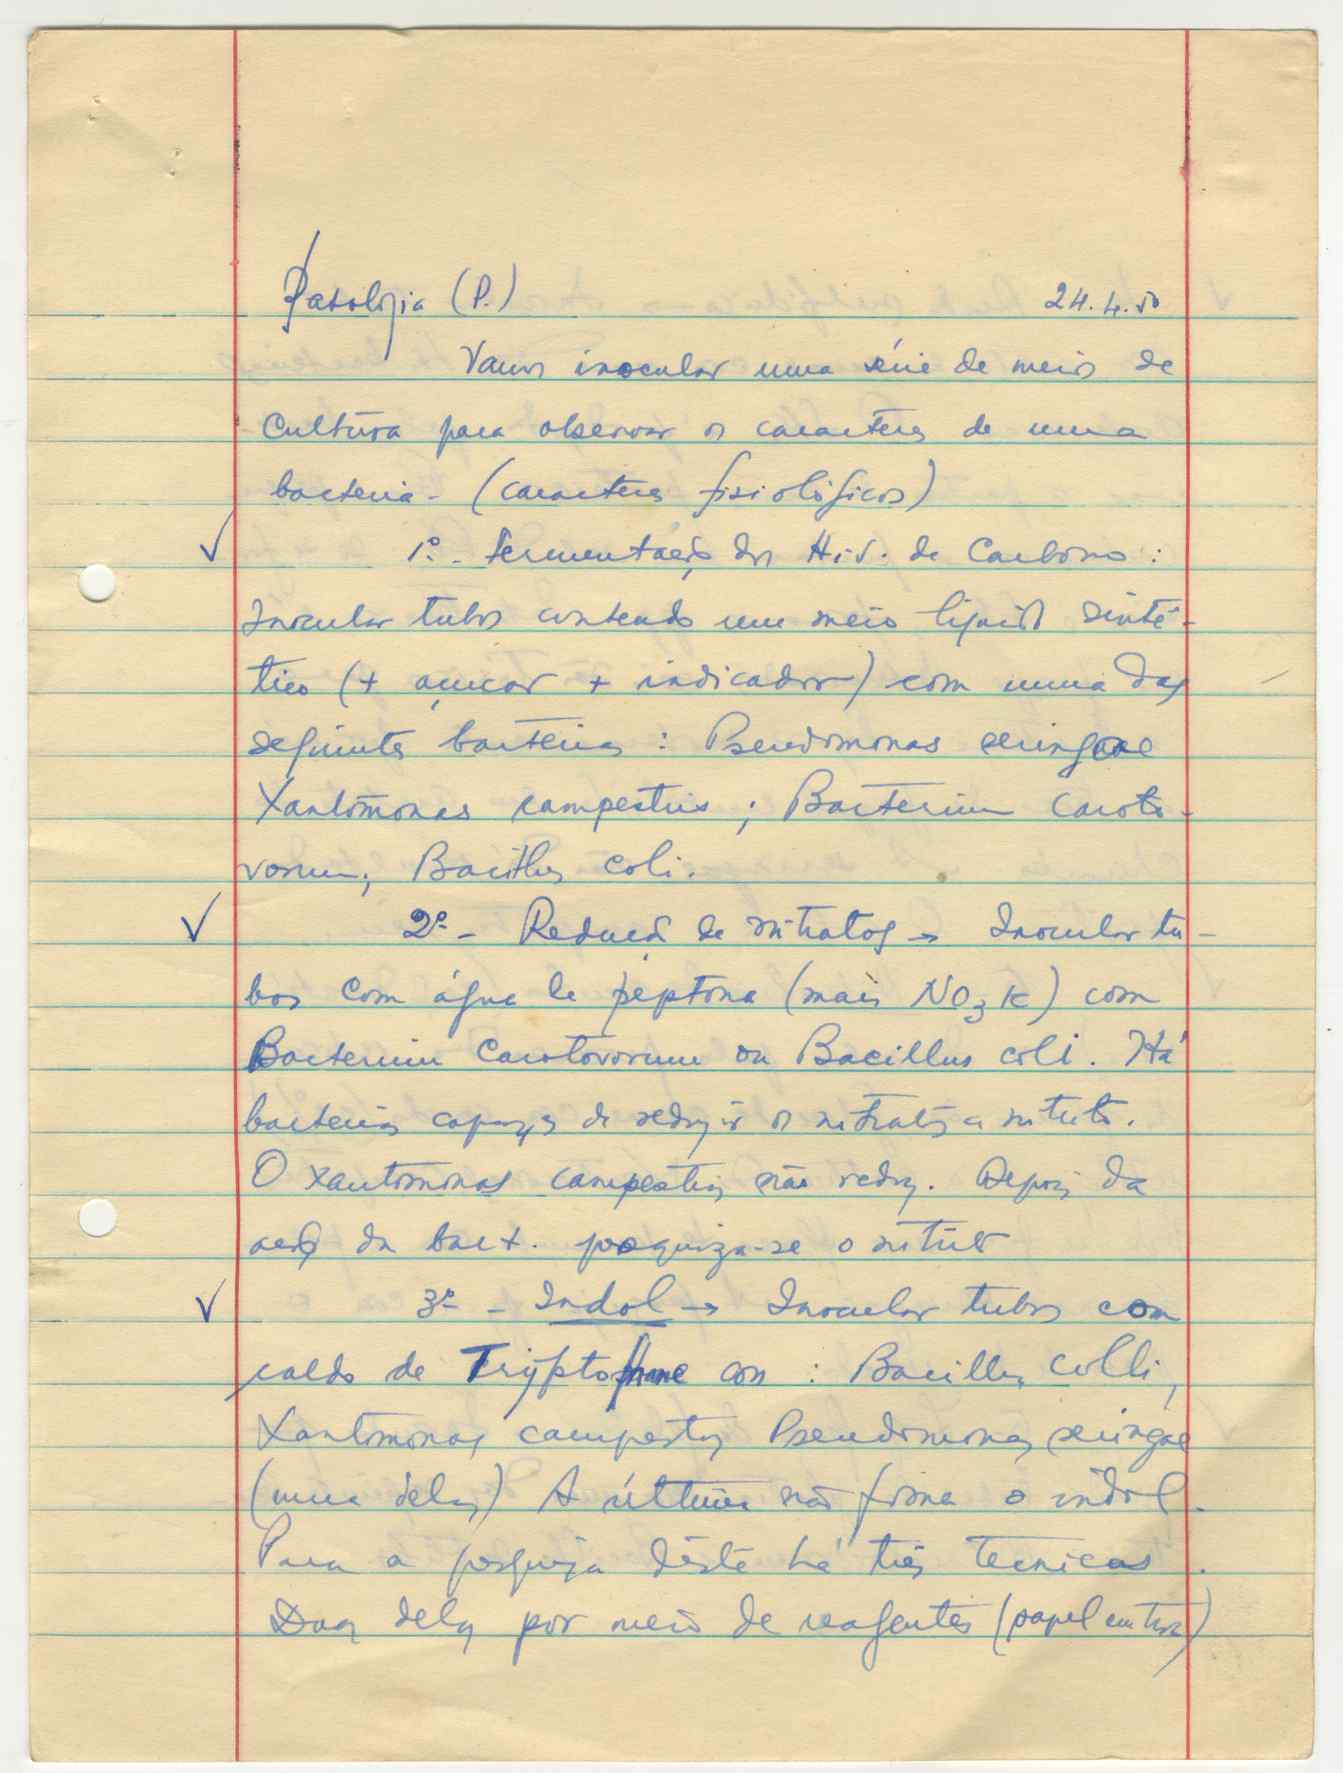 Patologia (P.) 24.4.50
Vamos inocular uma série de meios de
cultura para observar os caracteres de uma
bacteria - (caracteres fisiológicos)
✓ 1º - Fermentação dos H. de Carbono :
Inocular tubos contendo um meio liquido sinté-
tico (+ açucar + indicador) com uma das
seguintes bacterias : Pseudomonas seringae
Xantomonas campestris ; Bacterium caroto-
vorum, Bacillus coli.
✓ 2º - Redução de nitratos → Inocular tu-
bos com água de peptona (mais NO3K) com
Bacterium carotovorum ou Bacillus coli. Há
bacterias capazes de reduzir os nitratos a nitritos.
O Xantomonas campestris não reduz. Depois da
acção da bact. pesquiza-se o nitrito
✓ 3º - Indol → Inocular tubos com
caldo de Tryptophane con : Bacillus colli,
Xantomonas campestris Pseudomonas seringae
(uma delas) A última não forma o indol.
Para a pesquiza dêste há três tecnicas.
Duas delas por meio de reagentes (papel